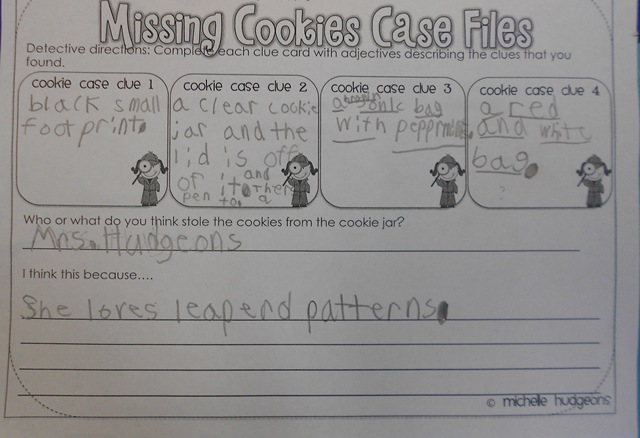 Missing Cookies Case Files
Detective directions: Complete each clue card with adjectives describing the clues that you
found.
cookie case clue 1
black small
footprints
cookie case clue 2
a clear cookie
jar and the
lid is off
of it and
pen to a
cookie case clue 3
a bag
with
cookie case clue 4
a red
and white
bag.
Who or what do you think stole the cookies from the cookie jar?
Mrs. Hudgeons
I think this because....
She loves leaperd patterns.
© michelle hudgeons